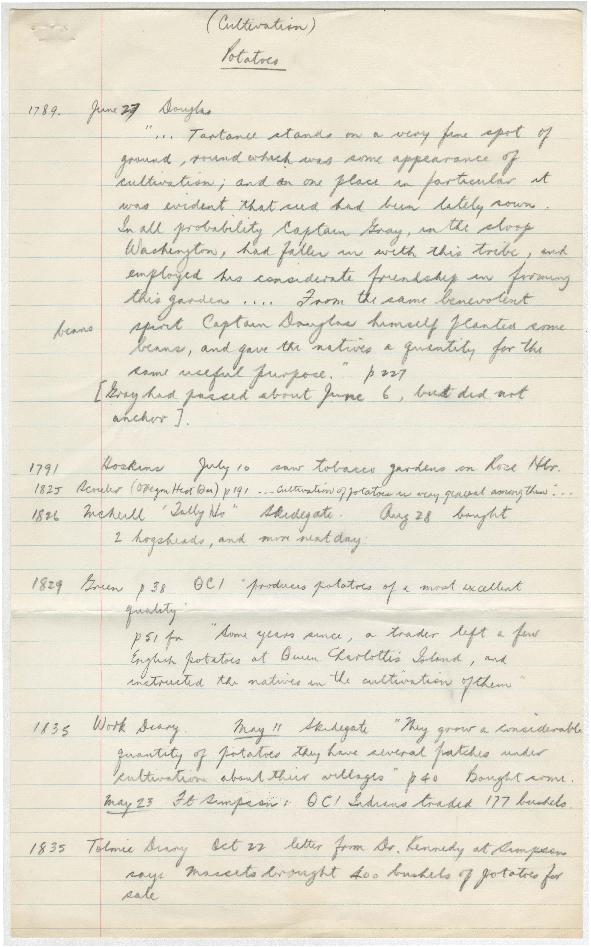 (Cultivation)
Potatoes
1789. June 27 Douglas
"... Tartanee stands on a very fine spot of
ground, round which was some appearance of
cultivation; and in one place in particular it
was evident that seed had been lately sown.
In all probability Captain Gray, in the sloop
Washington, had fallen in with this tribe, and
employed his considerate friendship in forming
this garden .... From the same benevolent
beans spirit Captain Douglas himself planted some
beans, and gave the natives a quantity for the
same useful purpose." p 227
[Gray had passed about June 6, but did not
anchor].
1791 Hoskins July 10 saw tobacco gardens on Rose Hbr.
1825 Scouler (Oregon Hist Quar) p191 ... cultivation of potatoes is very general among them"...
1826 McNeill "Tally Ho" Skidegate. Aug 28 bought
2 hogsheads, and more next day.
1829 Green p 38 QCI "produces potatoes of a most excellent
quality"
p51 fn "Some years since, a trader left a few
English potatoes at Queen Charlotte's Island, and
instructed the natives in the cultivation of them"
1835 Work Diary. May 11 Skidegate "They grow a considerable
quantity of potatoes they have several patches under
cultivation about their villages" p40 Bought some.
May 23 Ft Simpson: QCI Indians traded 177 bushels.
1835 Tolmie Diary Oct 22 letter from Dr. Kennedy at Simpson
says Massets brought 400 bushels of potatoes for
sale